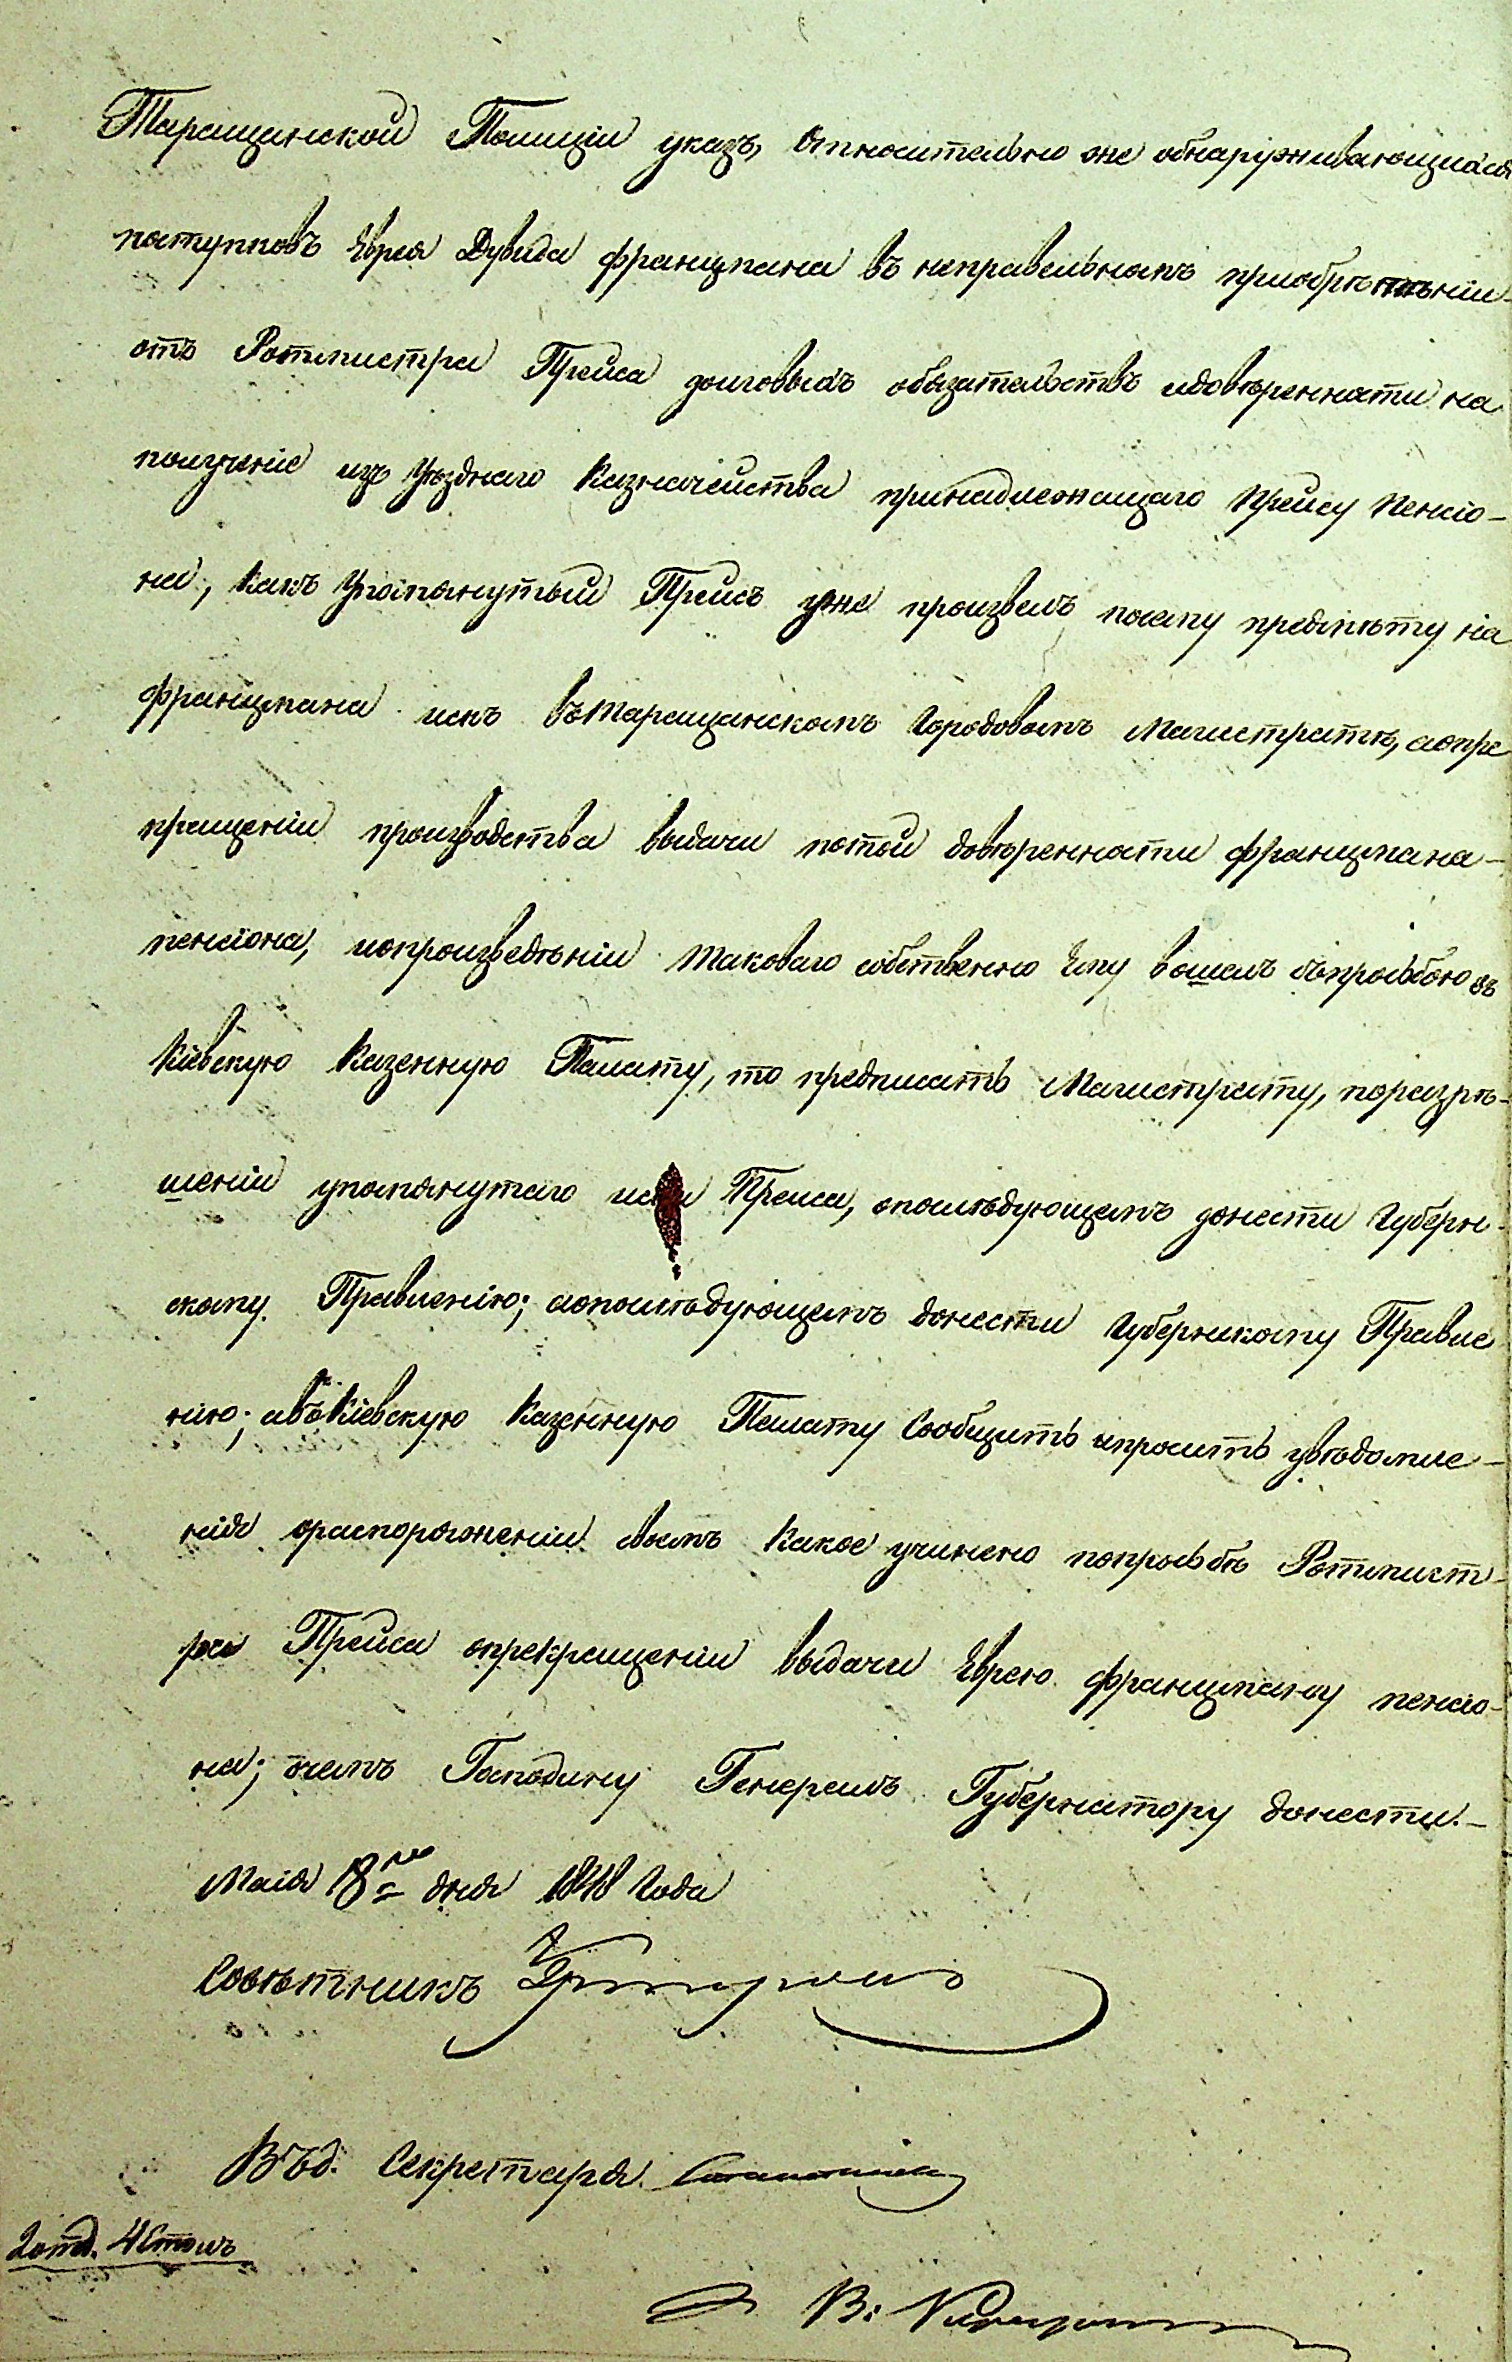 Таращанской Полиціи указъ, относительно же обнаруживающихся
поступковъ Еврея Дувида Францмана въ неправельномъ приобретѣніи
отъ Ротмистра Прейса долговыхъ обязательствъ идовѣренности на
полученіе изъ Уѣзднаго Казначейства принадлежащаго Прейсу Пенсіо-
на, какъ Упомянутый Прейсъ уже произвелъ посему предмѣту на
Францмана искъ вътаращанскомъ Городовомъ Магистратѣ, аопре
кращеніи производства выдачи потой довѣренности Францмана
пенсіона, ипроизведѣніи таковаго собственно Ему вошелъ съпрозьбою въ
Кіевскую Казенную Палату, то предписать Магистрату, поразрѣ-
шеніи упомянутаго иска Прейса, опослѣдующемъ донести Губерн-
скому Правленію; аопослѣдующемъ донести Губернскому Правле
нію; авъКіевскую Казенную Палату Сообщить ипросить увѣдомле-
нія ораспоряженіи своемъ какое учинено попрозьбѣ Ротмист-
ра Прейса опрекращеніи выдачи Еврею Францману пенсіо-
на; очемъ Господину Генералъ Губернатору донести.
Маія 18го дня 1848 Года
Совѣтникъ
Въд. Секретаря
2 отд. 4 Столъ
В: